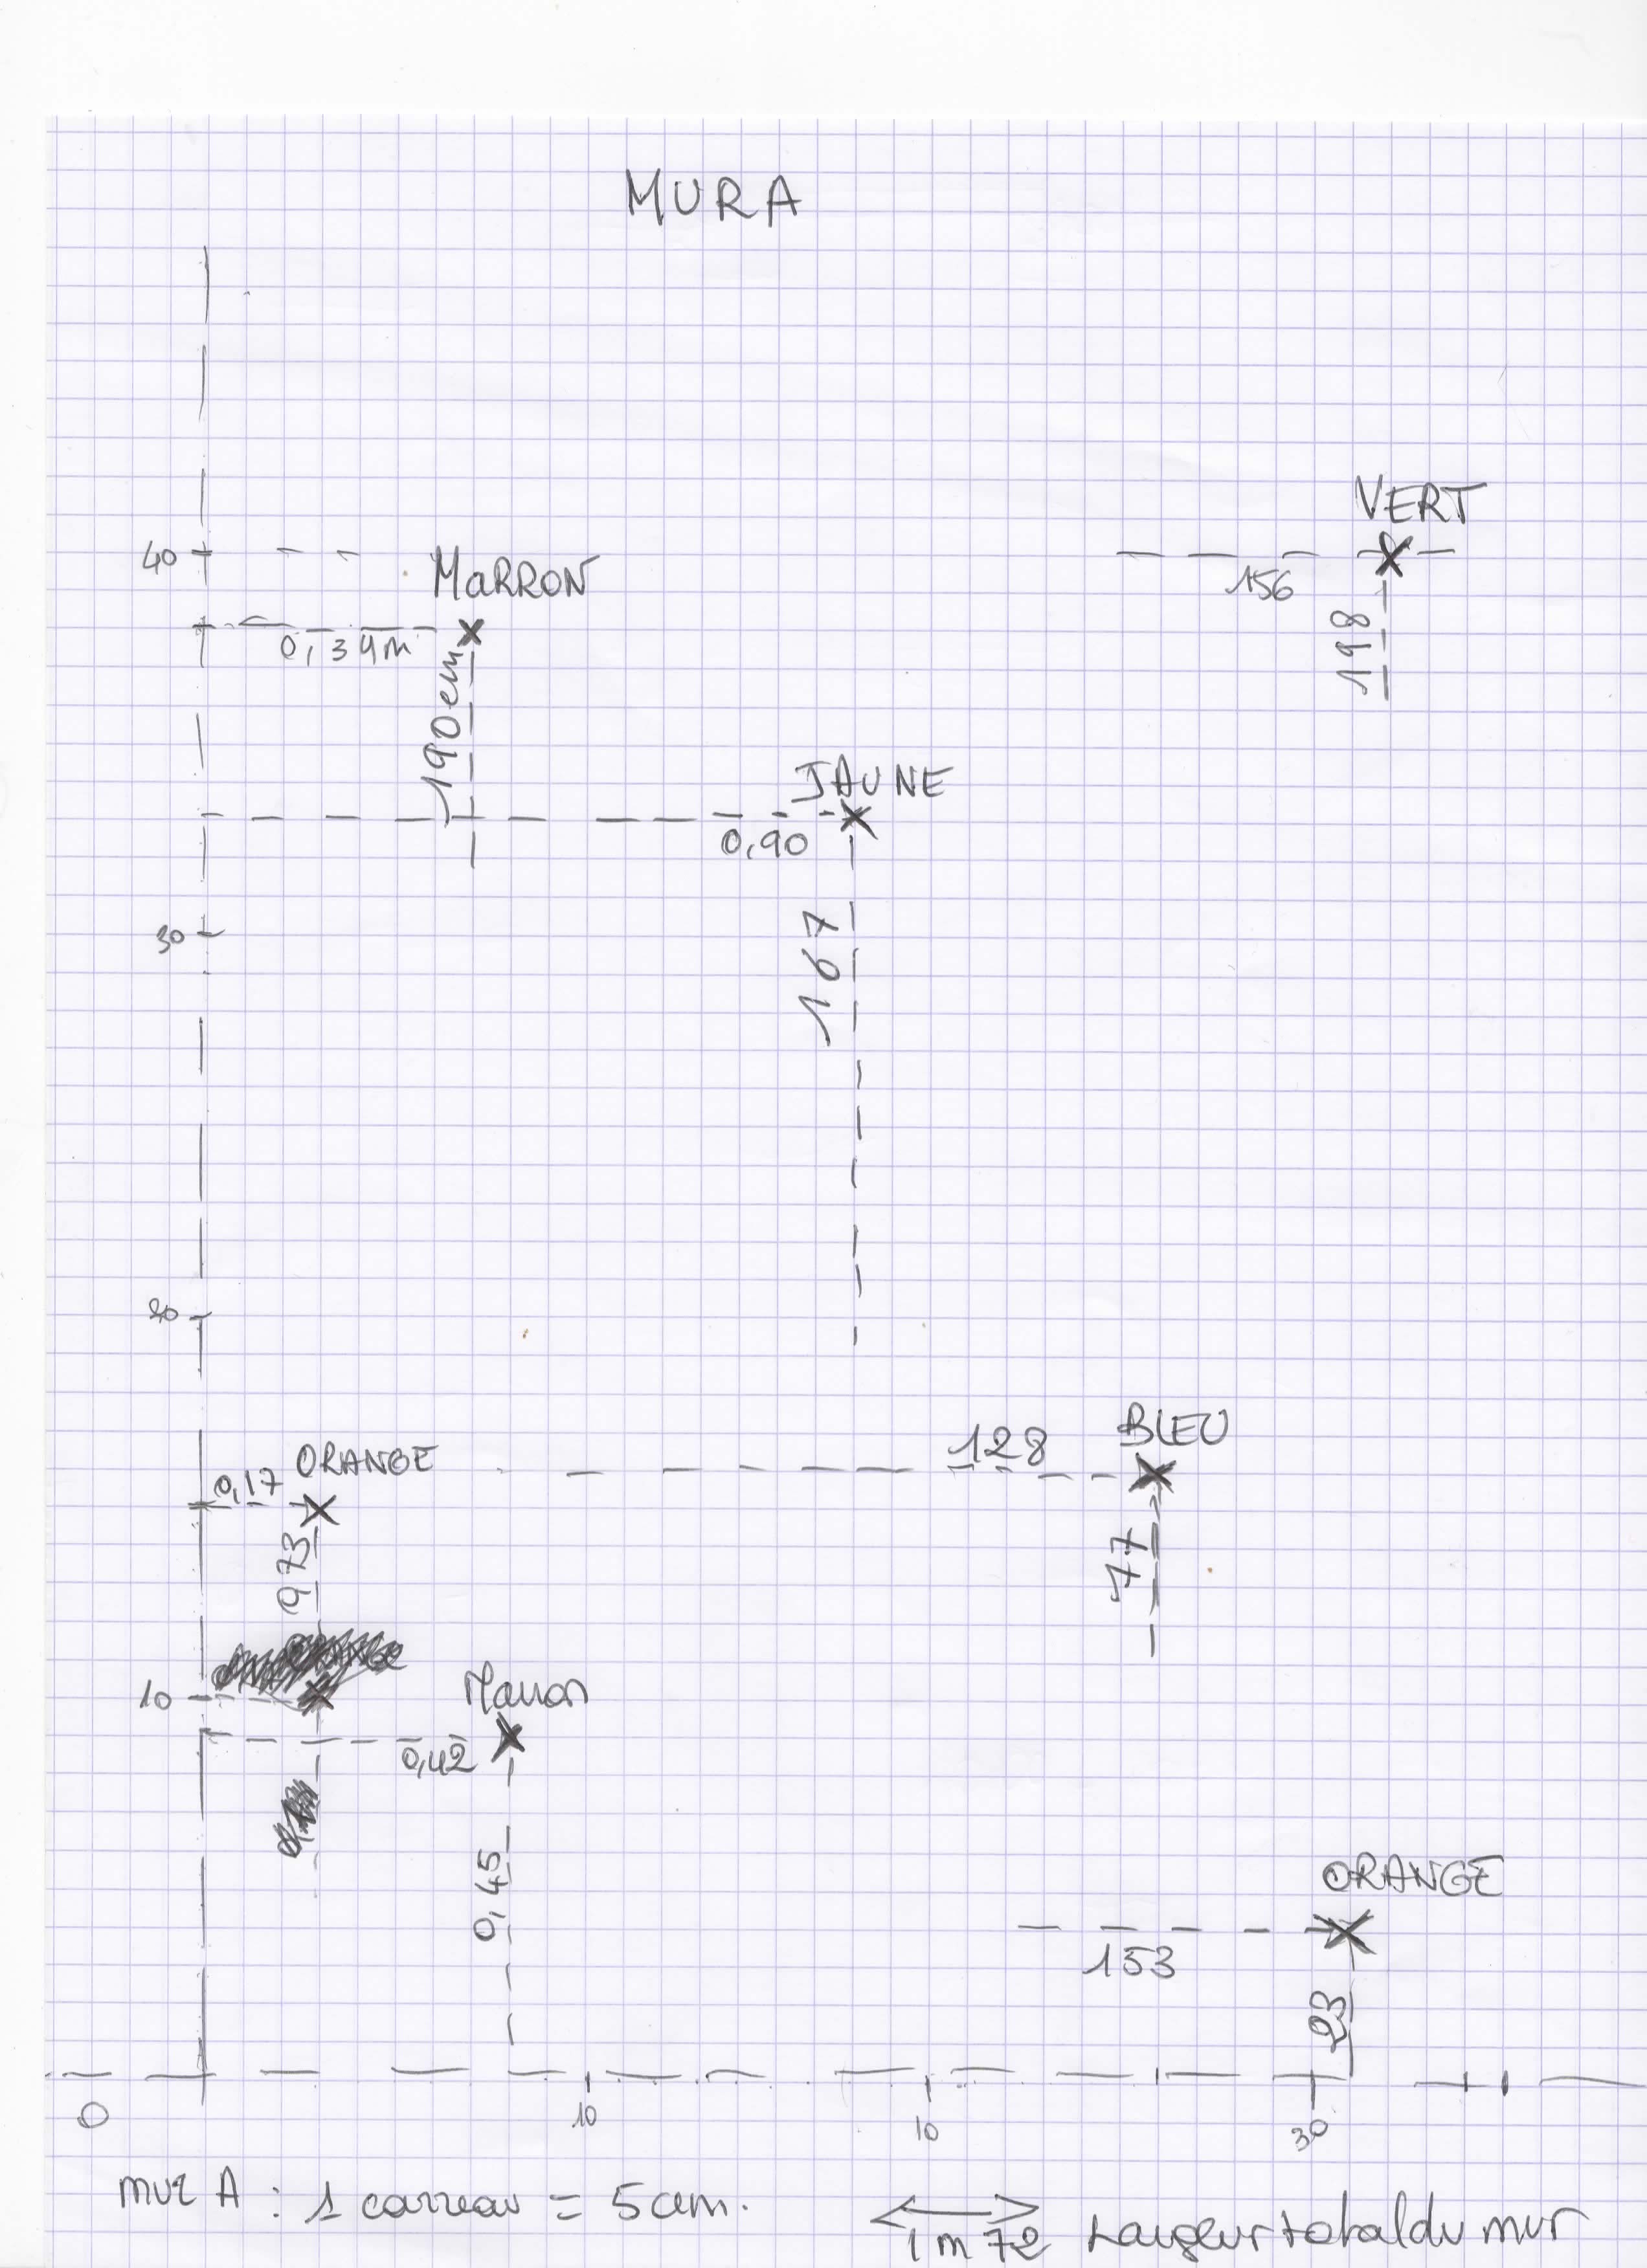 MUR A
VERT
40
MARRON
156
0,34m
198
190cm
JAUNE
0,90
167
30
20
BLEU
128
ORANGE
0,17
77
973
10
Marron
0,42
ORANGE
0,45
153
23
0
10
10
30
mur A : 1 carreau = 5cm.
1m72 Largeur total du mur